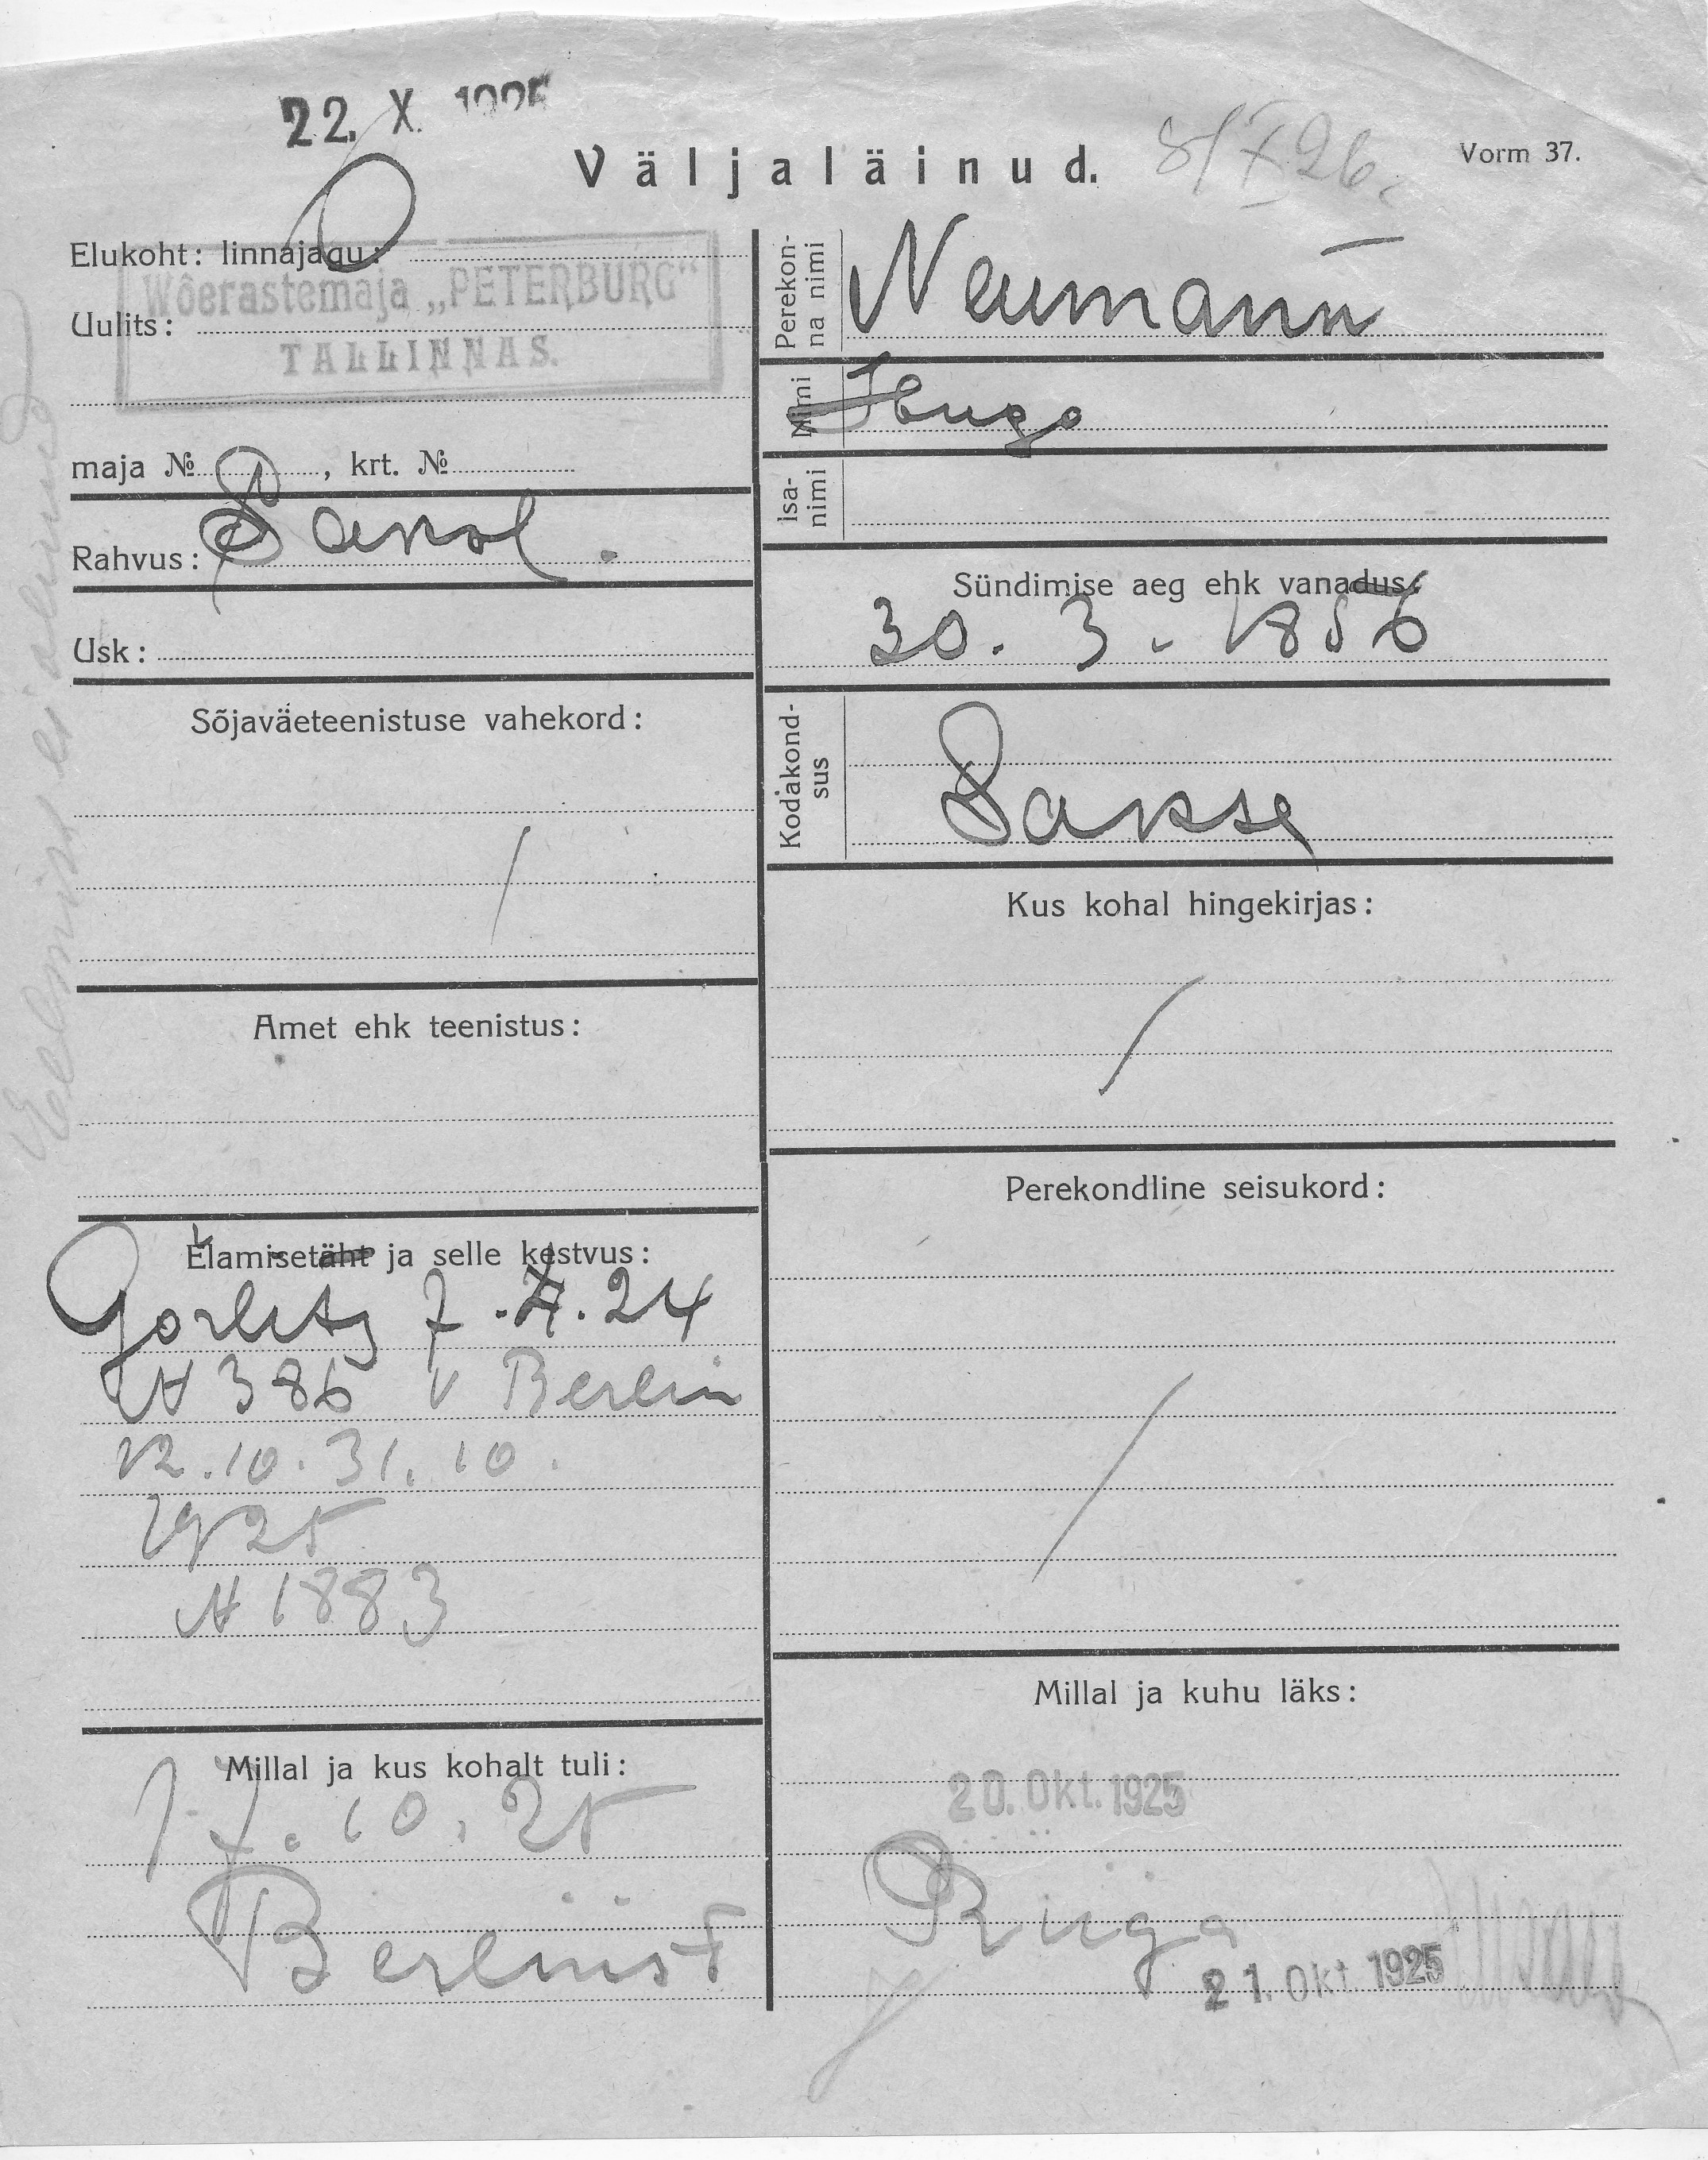 22. X. 1925
Väljaläinud.
8/X 26.
Vorm 37.
Elukoht: linnajagu:
Wõerastemaja „PETERBURG“
Uulits:
TALLINNAS.
maja № , krt. №
Rahvus: Saksl.
Usk:
Sõjaväeteenistuse vahekord:
Amet ehk teenistus:
Elamisetäht ja selle kestvus:
Görlitz 7.X.24
N 386 v Berlin
12.10. 31.10.
1925
N 1883
Millal ja kus kohalt tuli:
17.10.25
Berliinist
Perekonna nimi
Neumann
Nimi
Hugo
Isanimi
Sündimise aeg ehk vanadus:
30. 3. 1856
Kodakondsus
Saksa
Kus kohal hingekirjas:
Perekondline seisukord:
Millal ja kuhu läks:
20. Okt. 1925
Riiga
21. Okt 1925